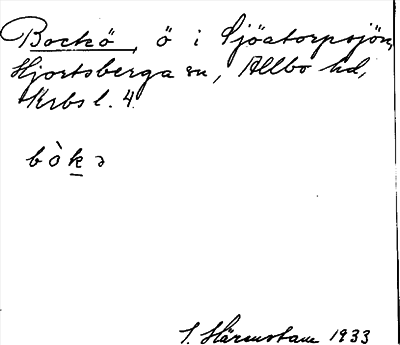 Bockö, ö i Sjöatorpssjön,
Hjortsberga sn, Allbo hd,
Krbs l. 4.
bò k ə
S. Härenstam 1933